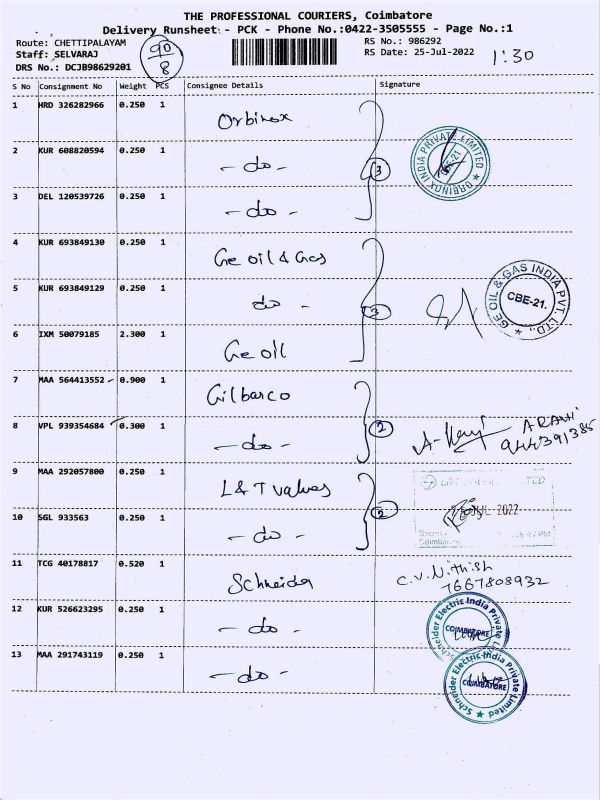 THE PROFESSIONAL COURIERS, Coimbatore
Delivery Runsheet - PCK - Phone No.:0422-3505555 - Page No.:1
Route: CHETTIPALAYAM 90/8 RS No.: 986292
Staff: SELVARAJ RS Date: 25-Jul-2022 1:30
DRS No.: DCJB98629201
S No Consignment No Weight PCS Consignee Details Signature
1 HRD 326282966 0.250 1 Orbinox
2 KUR 608820594 0.250 1 - do - 3 ORBINOX INDIA PRIVATE LIMITED CBE-21
3 DEL 120539726 0.250 1 - do -
4 KUR 693849130 0.250 1 Ge oil & Gas
5 KUR 693849129 0.250 1 - do - 3 GE OIL & GAS INDIA PVT. LTD., CBE-21.
6 IXM 50079185 2.300 1 Ge oil
7 MAA 564413552 0.900 1 Gilbarco
8 VPL 939354684 0.300 1 - do - 2
9 MAA 292057800 0.250 1 L & T valves
10 SGL 933563 0.250 1 - do - 2 JUL 2022
11 TCG 40178817 0.520 1 Schneider C.V. Nithish
7667808932
12 KUR 526623295 0.250 1 - do - Schneider Electric India Private Limited COIMBATORE
13 MAA 291743119 0.250 1 - do - Schneider Electric India Private Limited COIMBATORE